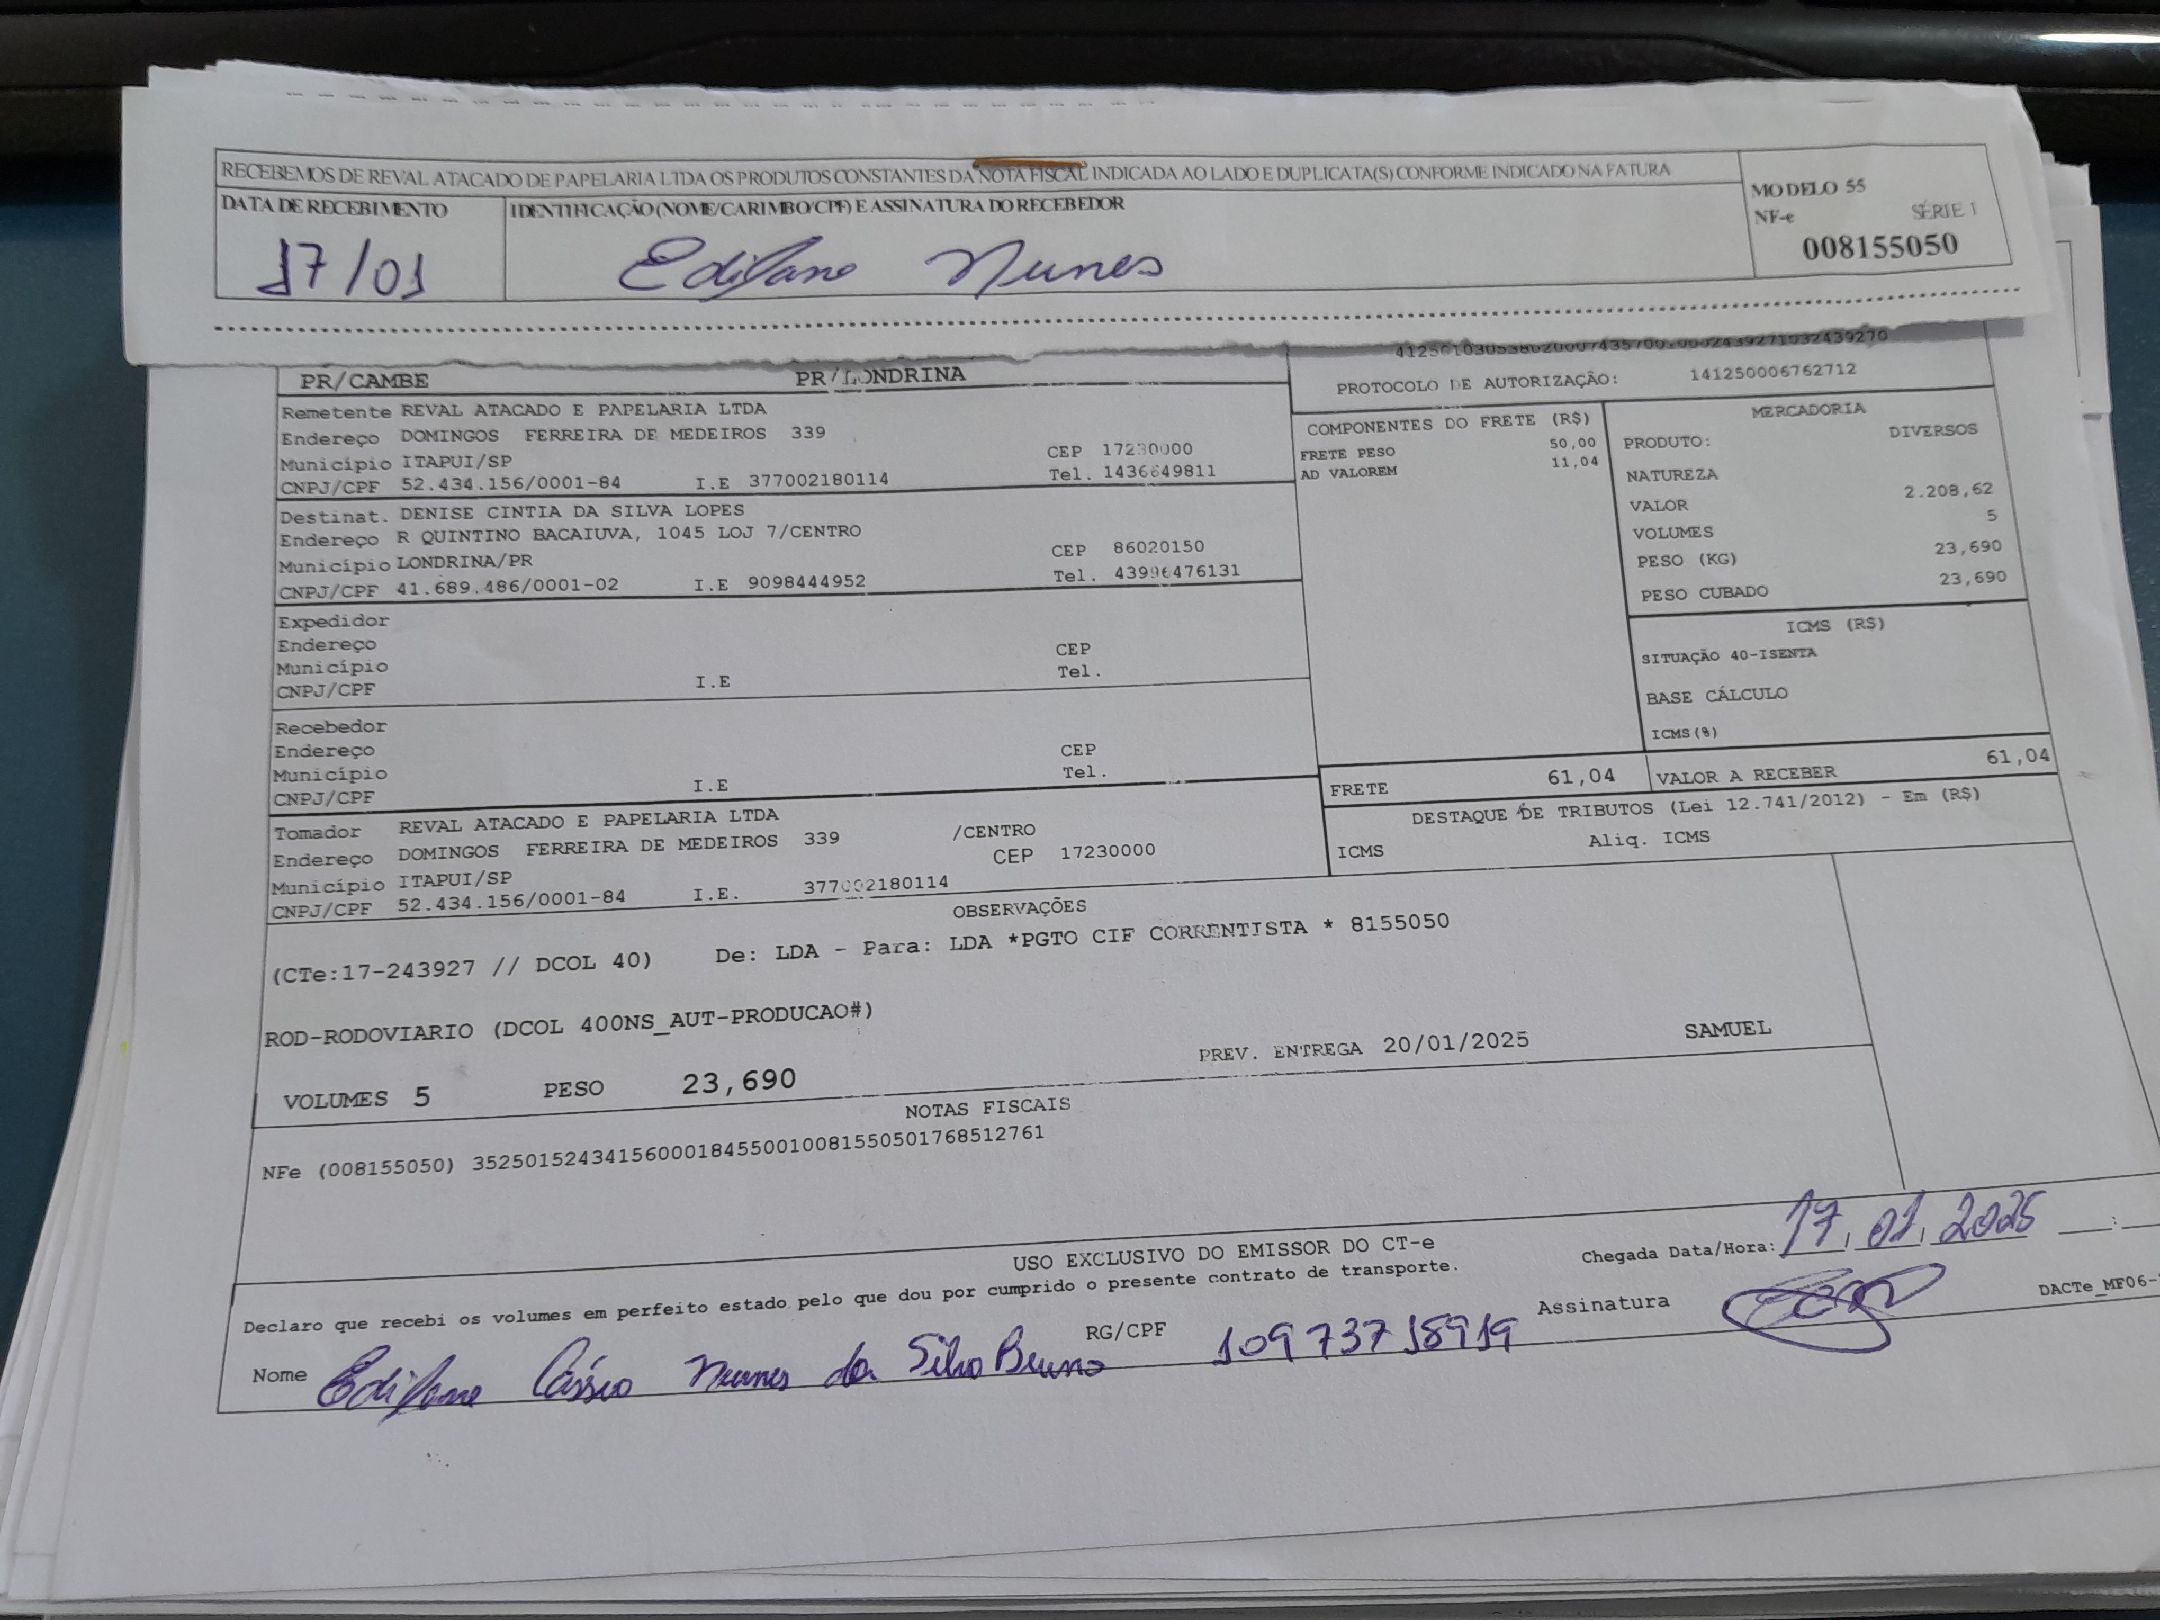 RECEBEMOS DE REVAL ATACADO DE PAPELARIA LTDA OS PRODUTOS CONSTANTES DA NOTA FISCAL INDICADA AO LADO E DUPLICATA(S) CONFORME INDICADO NA FATURA
DATA DE RECEBIMENTO IDENTIFICAÇÃO (NOME/CARIMBO/CPF) E ASSINATURA DO RECEBEDOR
17/01 Nunes
MODELO 55
NF-e SÉRIE 1
008155050
PR/CAMBE PR/LONDRINA
Remetente REVAL ATACADO E PAPELARIA LTDA
Endereço DOMINGOS FERREIRA DE MEDEIROS 339
Município ITAPUI/SP CEP 17230000
CNPJ/CPF 52.434.156/0001-84 I.E 377002180114 Tel. 1436649811
Destinat. DENISE CINTIA DA SILVA LOPES
Endereço R QUINTINO BACAIUVA, 1045 LOJ 7/CENTRO
Município LONDRINA/PR CEP 86020150
CNPJ/CPF 41.689.486/0001-02 I.E 9098444952 Tel. 43996476131
Expedidor
Endereço
Município CEP
CNPJ/CPF I.E Tel.
Recebedor
Endereço
Município CEP
CNPJ/CPF I.E Tel.
Tomador REVAL ATACADO E PAPELARIA LTDA
Endereço DOMINGOS FERREIRA DE MEDEIROS 339 /CENTRO
Município ITAPUI/SP CEP 17230000
CNPJ/CPF 52.434.156/0001-84 I.E. 377002180114
PROTOCOLO DE AUTORIZAÇÃO: 141250006762712
COMPONENTES DO FRETE (R$)
FRETE PESO 50,00
AD VALOREM 11,04
MERCADORIA
PRODUTO: DIVERSOS
NATUREZA
VALOR 2.208,62
VOLUMES 5
PESO (KG) 23,690
PESO CUBADO 23,690
ICMS (R$)
SITUAÇÃO 40-ISENTA
BASE CÁLCULO
ICMS(%)
FRETE 61,04 VALOR A RECEBER 61,04
DESTAQUE DE TRIBUTOS (Lei 12.741/2012) - Em (R$)
ICMS Aliq. ICMS
OBSERVAÇÕES
(CTe:17-243927 // DCOL 40) De: LDA - Para: LDA *PGTO CIF CORRENTISTA * 8155050
ROD-RODOVIARIO (DCOL 400NS_AUT-PRODUCAO#)
VOLUMES 5 PESO 23,690 PREV. ENTREGA 20/01/2025 SAMUEL
NOTAS FISCAIS
NFe (008155050) 35250152434156000184550010081550501768512761
USO EXCLUSIVO DO EMISSOR DO CT-e
Declaro que recebi os volumes em perfeito estado pelo que dou por cumprido o presente contrato de transporte.
Chegada Data/Hora: 17,01,2025 :
Nome Cássio Nunes da Silva Bruno RG/CPF 10973718919 Assinatura
DACTe_MF06-